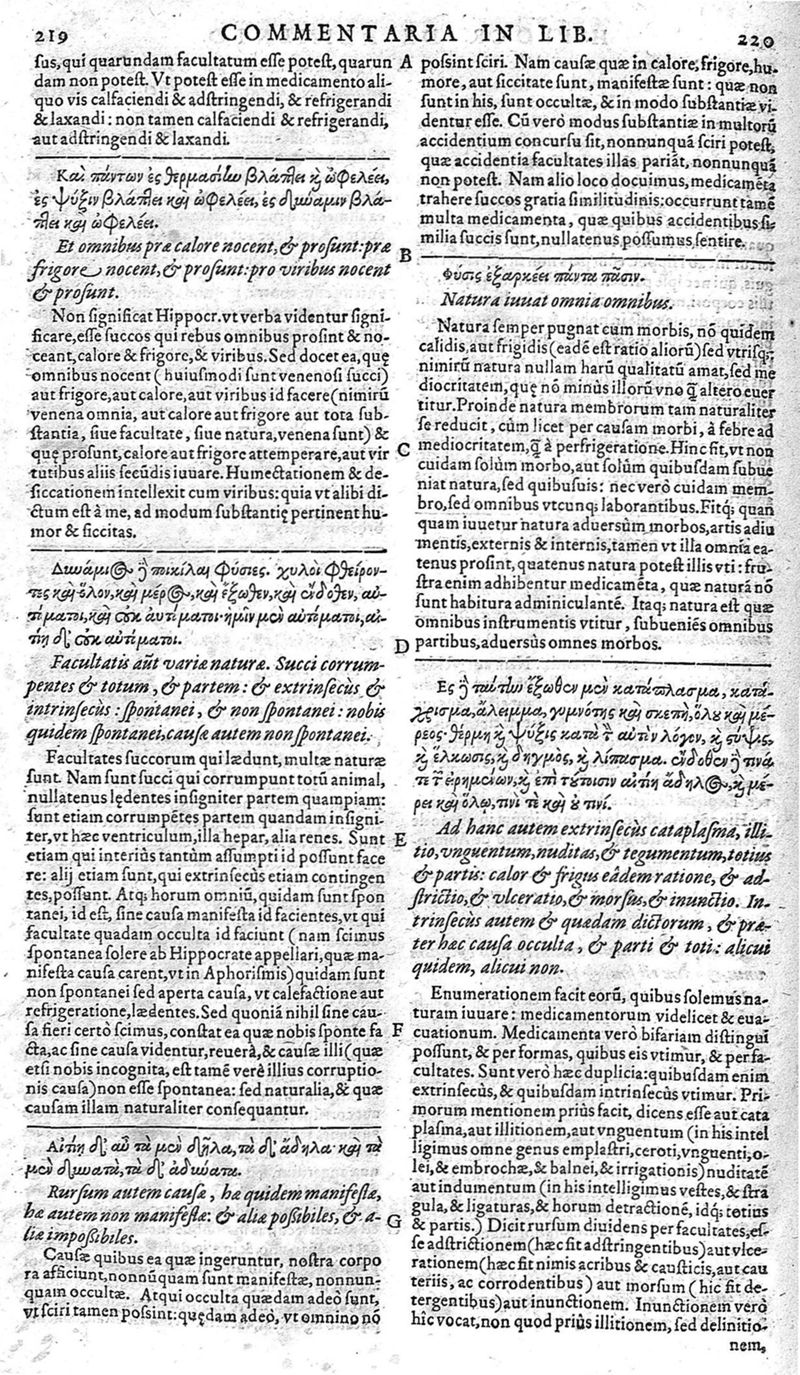 219 COMMENTARIA IN LIB. 220
sus, qui quarundam facultatum esse potest, quarun
dam non potest. Vt potest esse in medicamento ali-
quo vis calfaciendi & adstringendi, & refrigerandi
& laxandi: non tamen calfaciendi & refrigerandi,
aut adstringendi & laxandi.
Καὶ πάντων ἐς θερμασίην βλάπτει καὶ ὠφελέει,
ἐς ψύξιν βλάπτει καὶ ὠφελέει, ἐς δύναμιν βλά-
πτει καὶ ὠφελέει.
Et omnibus præ calore nocent, & prosunt: præ
frigore nocent, & prosunt: pro viribus nocent
& prosunt.
Non significat Hippocr. vt verba videntur signi-
ficare, esse succos qui rebus omnibus prosint & no-
ceant, calore & frigore, & viribus. Sed docet ea, quę
omnibus nocent (huiusmodi sunt venenosi succi)
aut frigore, aut calore, aut viribus id facere (nimirũ
venena omnia, aut calore aut frigore aut tota sub-
stantia, siue facultate, siue natura, venena sunt) &
quę prosunt, calore aut frigore attemperare, aut vir
tutibus aliis secũdis iuuare. Humectationem & de-
siccationem intellexit cum viribus: quia vt alibi di-
ctum est à me, ad modum substantię pertinent hu-
mor & siccitas.
Δυνάμιος ἢ ποικίλαι φύσιες. χυλοὶ φθείρον-
τες καὶ ὅλον, καὶ μέρος, καὶ ἔξωθεν, καὶ ἔνδοθεν, αὐ-
τίματοι, καὶ οὐκ αὐτίματοι· ἡμῖν μὲν αὐτίματοι, αἰ-
τίη δ' οὐκ αὐτίματοι.
Facultatis aũt variæ naturæ. Succi corrum-
pentes & totum, & partem: & extrinsecùs &
intrinsecùs: spontanei, & non spontanei: nobis
quidem spontanei, causæ autem non spontanei.
Facultates succorum qui lædunt, multæ naturæ
sunt. Nam sunt succi qui corrumpunt totũ animal,
nullatenus lędentes insigniter partem quampiam:
sunt etiam corrumpẽtes partem quandam insigni-
ter, vt hæc ventriculum, illa hepar, alia renes. Sunt
etiam qui interiùs tantùm assumpti id possunt face
re: alij etiam sunt, qui extrinsecùs etiam contingen
tes, possunt. Atq; horum omniũ, quidam sunt spon
tanei, id est, sine causa manifesta id facientes, vt qui
facultate quadam occulta id faciunt (nam scimus
spontanea solere ab Hippocrate appellari, quæ ma-
nifesta causa carent, vt in Aphorismis) quidam sunt
non spontanei sed aperta causa, vt calefactione aut
refrigeratione, lædentes. Sed quoniã nihil sine cau-
sa fieri certò scimus, constat ea quæ nobis sponte fa
cta, ac sine causa videntur, reuerà, & causæ illi (quæ
etsi nobis incognita, est tamẽ verè illius corruptio-
nis causa) non esse spontanea: sed naturalia, & quæ
causam illam naturaliter consequantur.
Αἰτίη δ' αὖ τὰ μὲν δῆλα, τὰ δ' ἄδηλα· καὶ τὰ
μὲν δυνατὰ, τὰ δ' ἀδύνατα.
Rursum autem causæ, hæ quidem manifestæ,
hæ autem non manifestæ: & aliæ possibiles, & a-
liæ impossibiles.
Causæ quibus ea quæ ingeruntur, nostra corpo
ra afficiunt, nonnũquam sunt manifestæ, nonnun-
quam occultæ. Atqui occulta quædam adeò sunt,
vt sciri tamen possint: quędam adeò, vt omnino nõ
A possint sciri. Nam causæ quæ in calore, frigore, hu-
more, aut siccitate sunt, manifestæ sunt: quæ non
sunt in his, sunt occultæ, & in modo substantiæ vi-
dentur esse. Cũ verò modus substantiæ in multorũ
accidentium concursu sit, nonnunquã sciri potest,
quæ accidentia facultates illas pariãt, nonnunquã
non potest. Nam alio loco docuimus, medicamẽta
trahere succos gratia similitudinis: occurrunt tamẽ
multa medicamenta, quæ quibus accidentibus si-
milia succis sunt, nullatenus possumus sentire.
B
Φύσις ἐξαρκέει πάντα πᾶσιν.
Natura iuuat omnia omnibus.
Natura semper pugnat cum morbis, nõ quidem
calidis, aut frigidis (eadẽ est ratio aliorũ) sed vtrisq;
nimirũ natura nullam harũ qualitatũ amat, sed me
diocritatem, quę nõ minùs illorũ vno q̃ altero euer
titur. Proinde natura membrorum tam naturaliter
se reducit, cùm licet per causam morbi, à febre ad
C mediocritatem, q̃ à perfrigeratione. Hinc fit, vt non
cuidam solùm morbo, aut solùm quibusdam subue
niat natura, sed quibusuis: nec verò cuidam mem-
bro, sed omnibus vtcunq; laborantibus. Fitq; quan
quam iuuetur natura aduersùm morbos, artis adiu
mentis, externis & internis, tamen vt illa omnia ea-
tenus prosint, quatenus natura potest illis vti: fru-
stra enim adhibentur medicamẽta, quæ naturã nõ
sunt habitura adminiculantẽ. Itaq; natura est quæ
omnibus instrumentis vtitur, subueniẽs omnibus
D partibus, aduersùs omnes morbos.
Ἐς ἢ ταύτην ἔξωθεν μὲν κατάπλασμα, κατά-
χρισμα, ἄλειμμα, γυμνότης καὶ σκεπὴ, ὅλου καὶ μέ-
ρεος· θερμὴ καὶ ψύξις κατὰ τ̃ αὐτὸν λόγον, καὶ στύψις,
καὶ ἕλκωσις, καὶ δηγμὸς, καὶ λίπασμα. ἔνδοθεν ἢ τινά
τε τ̃ εἰρημένων, καὶ ἐπὶ τούτοισιν αἰτίη ἄδηλος, καὶ μέ-
ρει καὶ ὅλῳ, τινί τε καὶ οὔ τινί.
Ad hanc autem extrinsecùs cataplasma, illi-
E tio, vnguentum, nuditas, & tegumentum, totius
& partis: calor & frigus eâdem ratione, & ad-
strictio, & vlceratio, & morsus, & inunctio. In-
trinsecùs autem & quædam dictorum, & præ-
ter hæc causa occulta, & parti & toti: alicui
quidem, alicui non.
Enumerationem facit eorũ, quibus solemus na-
turam iuuare: medicamentorum videlicet & eua-
F cuationum. Medicamenta verò bifariam distingui
possunt, & per formas, quibus eis vtimur, & per fa-
cultates. Sunt verò hæc duplicia: quibusdam enim
extrinsecùs, & quibusdam intrinsecùs vtimur. Pri-
morum mentionem priùs facit, dicens esse aut cata
plasma, aut illitionem, aut vnguentum (in his intel
ligimus omne genus emplastri, ceroti, vnguenti, o-
lei, & embrochæ, & balnei, & irrigationis) nuditatẽ
aut indumentum (in his intelligimus vestes, & stra
gula, & ligaturas, & horum detractionẽ, idq; totius
G & partis.) Dicit rursum diuidens per facultates, es-
se adstrictionem (hæc fit adstringentibus) aut vlce-
rationem (hæc fit nimis acribus & causticis, aut cau
teriis, ac corrodentibus) aut morsum (hic fit de-
tergentibus) aut inunctionem. Inunctionem verò
hîc vocat, non quod priùs illitionem, sed delinitio-
nem,